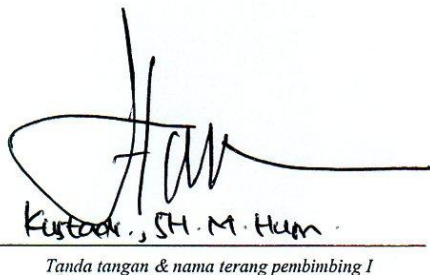 Kustadi., SH. M. Hum.
Tanda tangan & nama terang pembimbing I